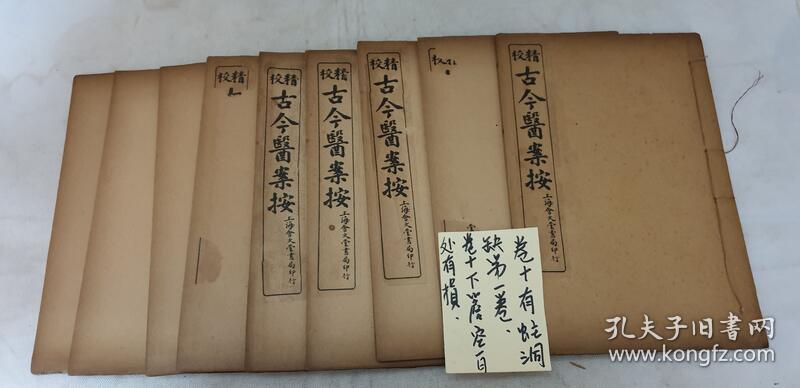 精校
精校
古今醫案按
上海會文堂書局印行
精校
古今醫案按
上海會文堂書局印行
精校
古今醫案按
上海會文堂書局印行
精校
古今醫案按
上海會文堂書局印行
卷十有蛀洞
缺第一卷、
卷十下空白
处有損、
孔夫子旧书网
www.kongfz.com